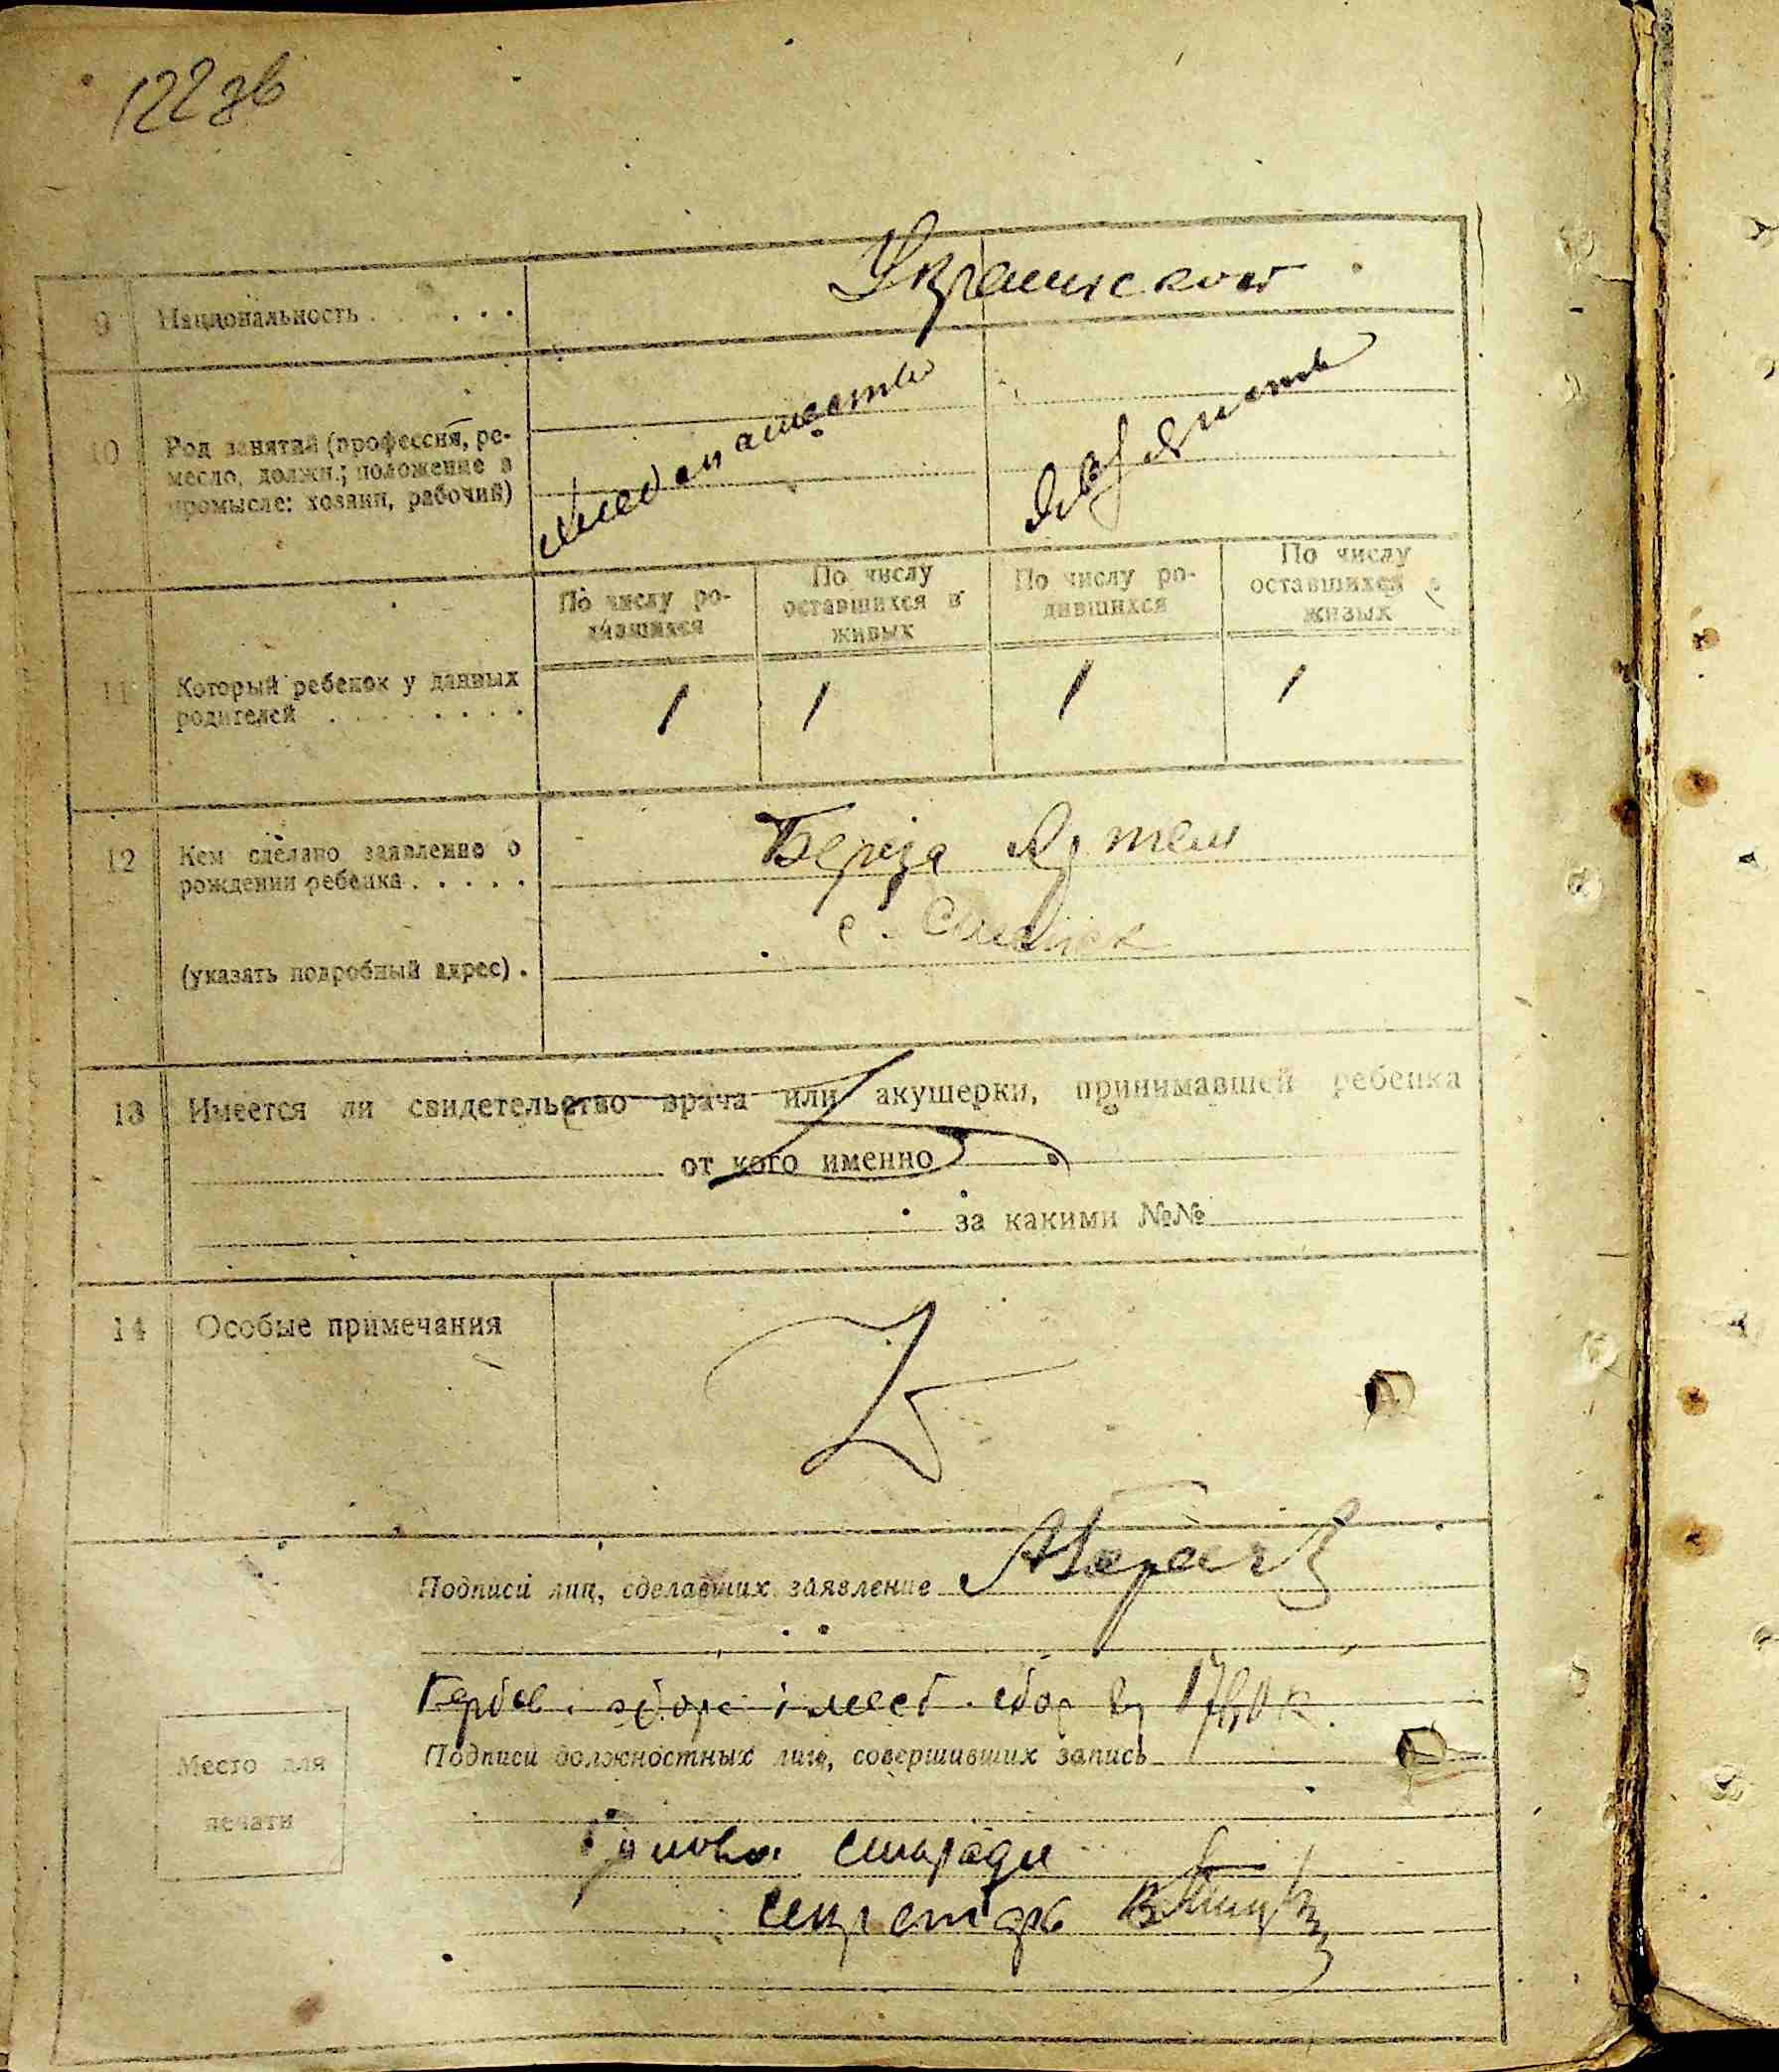 122 зв
9 Национальность . . . . . .
Украинской
10 Род занятий (профессия, ре-
месло, должн.; положение в
промысле: хозяин, рабочий)
По числу ро-
дившихся
По числу
оставшихся в
живых
По числу ро-
дившихся
По числу
оставшихся в
живых
11 Который ребенок у данных
родителей . . . . . . . .
1 1 1 1
12 Кем сделано заявление о
рождении ребенка . . . . .
Береза Артем
(указать подробный адрес) .
с.
13 Имеется ли свидетельство врача или акушерки, принимавшей ребенка
от кого именно
за какими №№
14 Особые примечания
Подписи лиц, сделавших заявление
Подписи должностных лиц, совершивших запись
Место для
печати
Голова сільради
секретарь